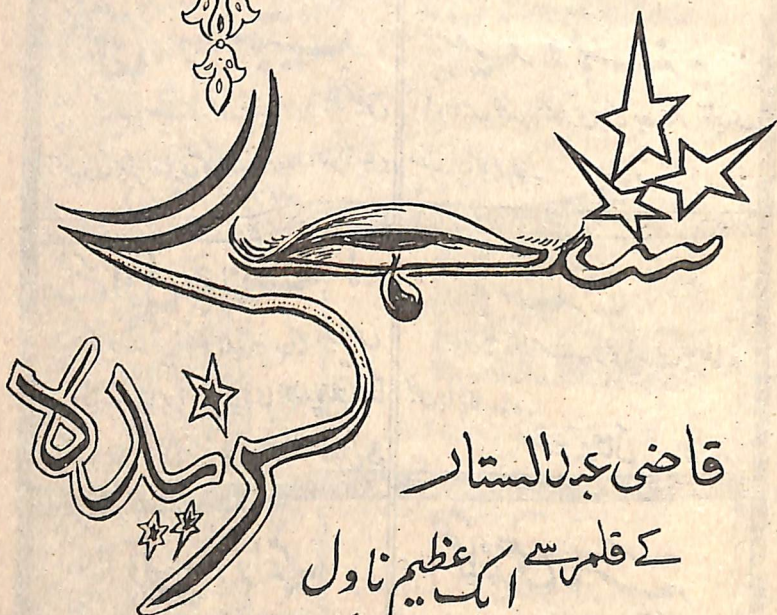 شب
گزیدہ
قاضی عبدالستار
کے قلم سے ایک عظیم ناول